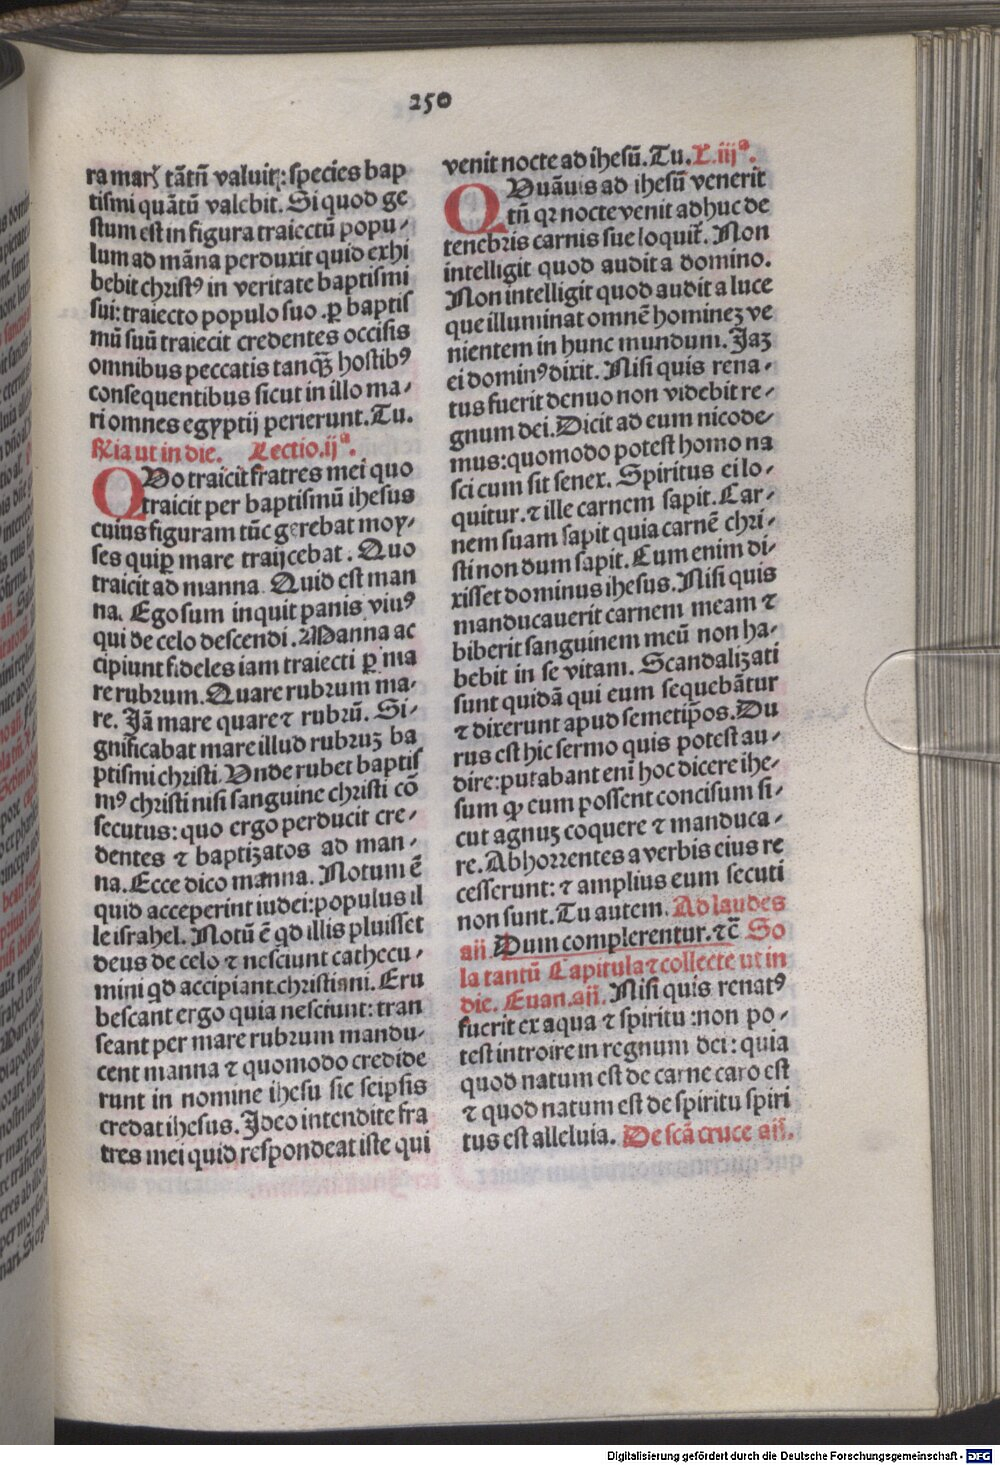 250
ra marꝭ tātū valuit: species bap
tismi quātū valebit. Si quod ge
stum est in figura traiectū popu-
lum ad māna perduxit quid exhi
bebit christꝰ in veritate baptismi
sui: traiecto populo suo. ꝑ baptis
mū suū traiecit credentes occisis
omnibus peccatis tanqꝫ̄ hostibꝰ
consequentibus sicut in illo ma-
ri omnes egyptij perierunt. Tu.
℟ia ut in die. Lectio.ijª.
QVo traicit fratres mei quo
traicit per baptismū ihesus
cuius figuram tūc gerebat moy-
ses qui ꝑ mare traijcebat. Quo
traicit ad manna. Quid est man
na. Ego sum inquit panis viuꝰ
qui de celo descendi. Manna ac
cipiunt fideles iam traiecti ꝑ ma
re rubrum. Quare rubrum ma-
re. Jā mare quare ⁊ rubrū. Si-
gnificabat mare illud rubruꝫ ba
ptismi christi. Vnde rubet baptis
mꝰ christi nisi sanguine christi cō
secutus: quo ergo perducit cre-
dentes ⁊ baptizatos ad man-
na. Ecce dico manna. Notum ē
quid acceperint iudei: populus il
le israhel. Notū ē qd illis pluisset
deus de celo ⁊ nesciunt cathecu-
mini qd accipiant christiani. Eru
bescant ergo quia nesciunt: tran
seant per mare rubrum mandu-
cent manna ⁊ quomodo credide
runt in nomine ihesu sic seipsis
credat ihesus. Jdeo intendite fra
tres mei quid respondeat iste qui
venit nocte ad ihesū. Tu. L.iijª.
QVuāuis ad ihesū venerit
tn̄ qꝛ nocte venit adhuc de
tenebris carnis sue loquit̄. Non
intelligit quod audit a domino.
Non intelligit quod audit a luce
que illuminat omnē homineꝫ ve
nientem in hunc mundum. Jaꝫ
ei dominꝰ dixit. Nisi quis rena-
tus fuerit denuo non videbit re-
gnum dei. Dicit ad eum nicode-
mus: quomodo potest homo na
sci cum sit senex. Spiritus ei lo-
quitur. ⁊ ille carnem sapit. Car-
nem suam sapit quia carnē chri-
sti non dum sapit. Cum enim di-
xisset dominus ihesus. Nisi quis
manducauerit carnem meam ⁊
biberit sanguinem meū non ha-
bebit in se vitam. Scandalizati
sunt quidā qui eum sequebātur
⁊ dixerunt apud semetip̄os. Du
rus est hic sermo quis potest au-
dire: putabant eni hoc dicere ihe-
sum ꝙ eum possent concisum si-
cut agnuꝫ coquere ⁊ manduca-
re. Abhorrentes a verbis eius re
cesserunt: ⁊ amplius eum secuti
non sunt. Tu autem. Ad laudes
añ. Dum complerentur. ⁊c̄ So
la tantū Capitula ⁊ collecte ut in
die. Euan. añ. Nisi quis renatꝰ
fuerit ex aqua ⁊ spiritu: non po-
test introire in regnum dei: quia
quod natum est de carne caro est
⁊ quod natum est de spiritu spiri
tus est alleluia. De scā cruce añ.
Digitalisierung gefördert durch die Deutsche Forschungsgemeinschaft - DFG